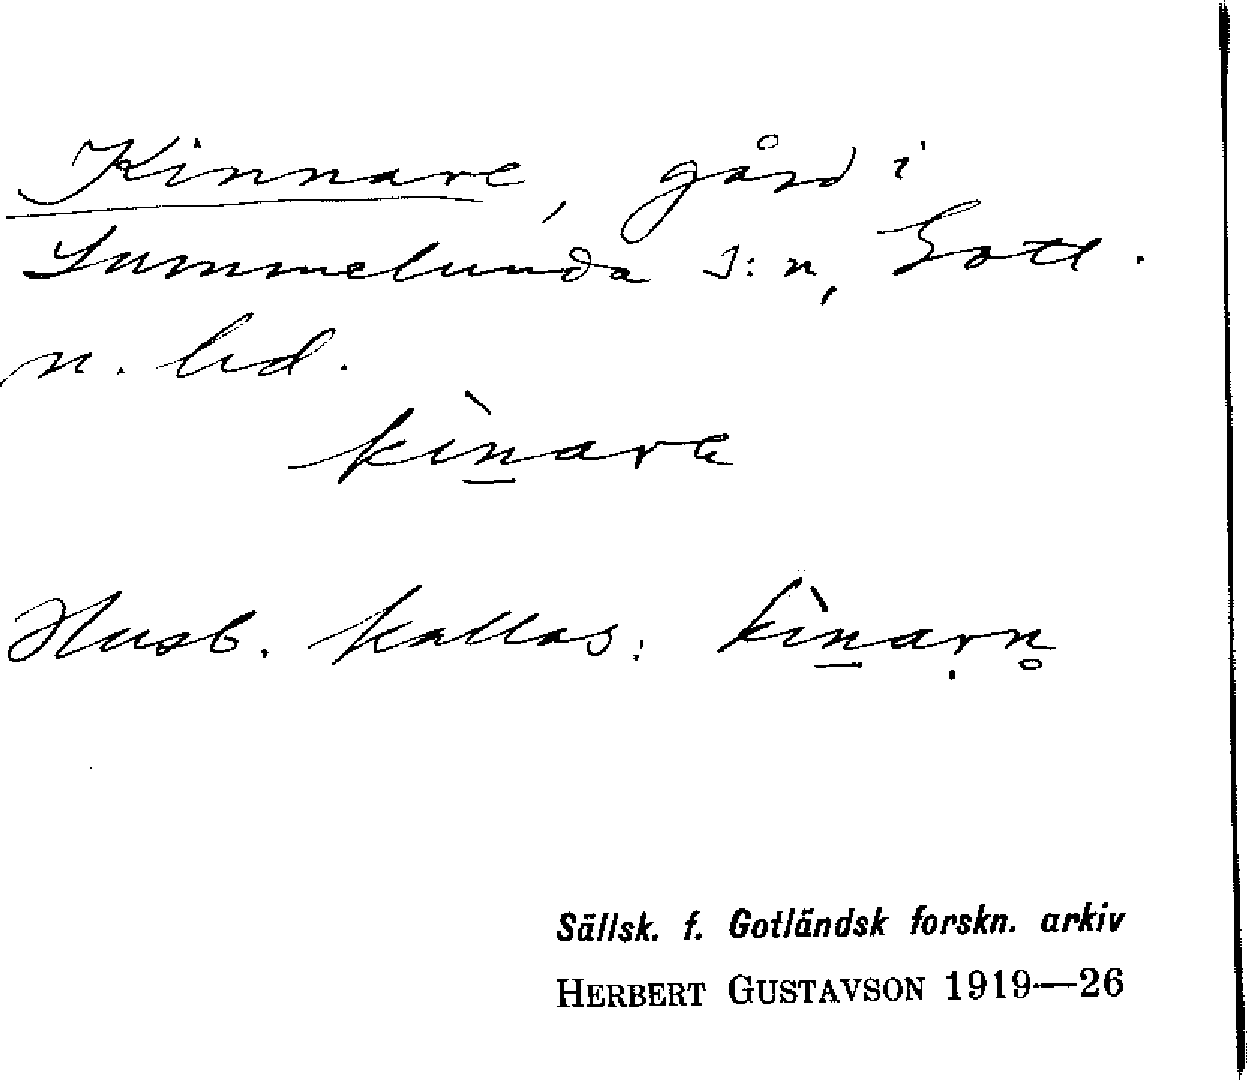 Kinnare, gård i
Lummelunda s:n, Gotl.
n. hd.
kìn̲are
Husb. kallas: kìn̲aṛn̥
Sällsk. f. Gotländsk forskn. arkiv
HERBERT GUSTAVSON 1919—26